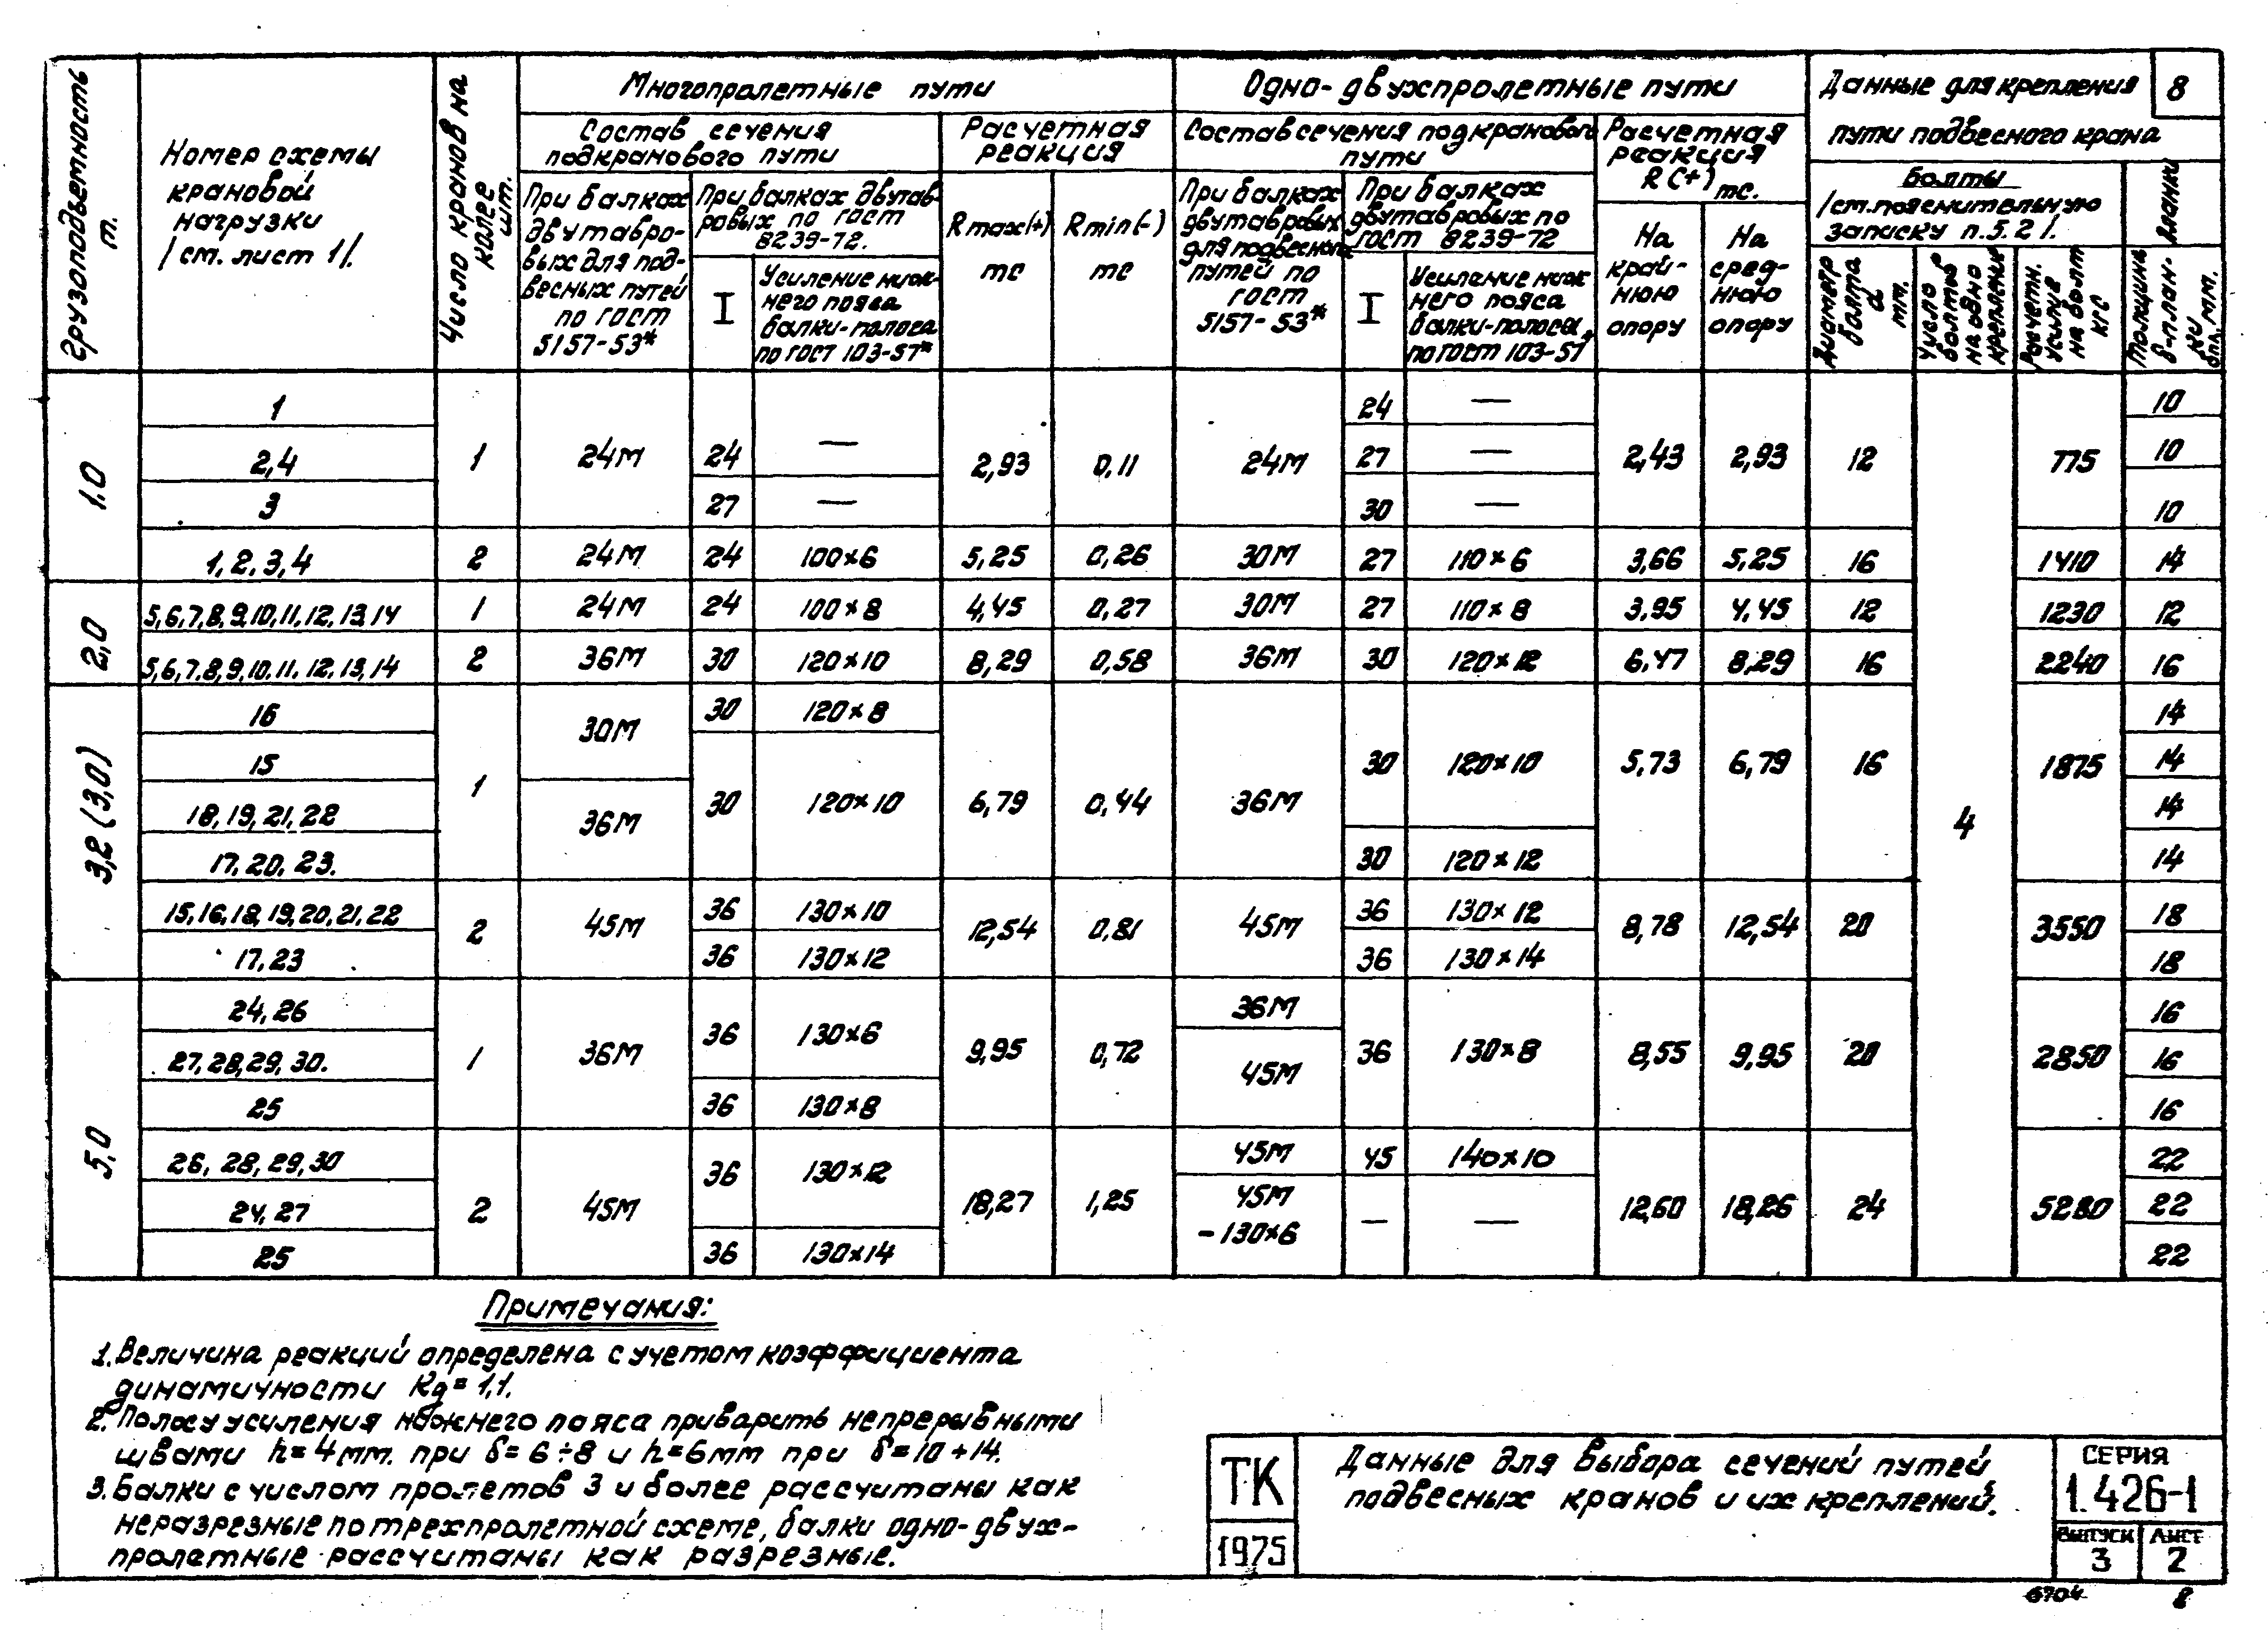 8
Грузоподъемность т.
Номер схемы
крановой
нагрузки
/см. лист 1/.
Число кранов на
колее
шт.
Многопролетные пути
Состав сечения
подкранового пути
При балках
двутавро-
вых для под-
весных путей
по гост
5157-53*
При балках двутав-
ровых по гост
8239-72.
I
Усиление ниж-
него пояса
балки-полоса
по гост 103-57*
Расчетная
реакция
Rmax(+)
тс
Rmin(-)
тс
Одно-двухпролетные пути
Состав сечения подкранового
пути
При балках
двутавровых
для подвесного
путей по
гост
5157-53*
При балках
двутавровых по
гост 8239-72
I
Усиление ниж
него пояса
балки-полосы,
по гост 103-57*
Расчетная
реакция
R(+) тс.
На
край-
нюю
опору
На
сред-
нюю
опору
Данные для крепления
пути подвесного крана
Болты
/см.пояснительную
записку п.5.2/.
Диаметр
болта
d
мм.
Число
болтов
на одно
крепление
Расчетн.
усилие
на болт
кгс
Планки
Толщина
δ-план-
ки
оп., мм.
1,0
1 24 — 10
2,4 1 24М 24 — 2,93 0,11 24М 27 — 2,43 2,93 12 775 10
3 27 — 30 — 10
1, 2, 3, 4 2 24М 24 100×6 5,25 0,26 30М 27 110×6 3,66 5,25 16 1410 14
2,0
5,6,7,8,9,10,11,12,13,14 1 24М 24 100×8 4,45 0,27 30М 27 110×8 3,95 4,45 12 1230 12
5,6,7,8,9,10,11,12,13,14 2 36М 30 120×10 8,29 0,58 36М 30 120×12 6,47 8,29 16 2240 16
3,2 (3,0)
16 30М 30 120×8 14
15 30 120×10 5,73 6,79 16 1875 14
18, 19, 21, 22 1 36М 30 120×10 6,79 0,44 36М 4 14
17, 20, 23. 30 120×12 14
15,16,18,19,20,21,22 2 45М 36 130×10 12,54 0,81 45М 36 130×12 8,78 12,54 20 3550 18
17, 23 36 130×12 36 130×14 18
5,0
24, 26 36М 16
27, 28, 29, 30. 1 36М 36 130×6 9,95 0,72 45М 36 130×8 8,55 9,95 20 2850 16
25 36 130×8 16
26, 28, 29, 30 36 130×12 45М 45 140×10 22
24, 27 2 45М 18,27 1,25 45М – – 12,60 18,26 24 5280 22
-130×6
25 36 130×14 22
Примечания:
1. Величина реакций определена с учетом коэффициента
динамичности Кд = 1,1.
2. Полосу усиления нижнего пояса приварить непрерывными
швами h = 4 мм. при δ = 6 ÷ 8 и h = 6 мм при δ = 10 ÷ 14.
3. Балки с числом пролетов 3 и более рассчитаны как
неразрезные по трехпролетной схеме, балки одно-двух-
пролетные рассчитаны как разрезные.
ТК
1975
Данные для выбора сечений путей
подвесных кранов и их креплений.
СЕРИЯ
1.426-1
ВЫПУСК
3
ЛИСТ
2
6704 8